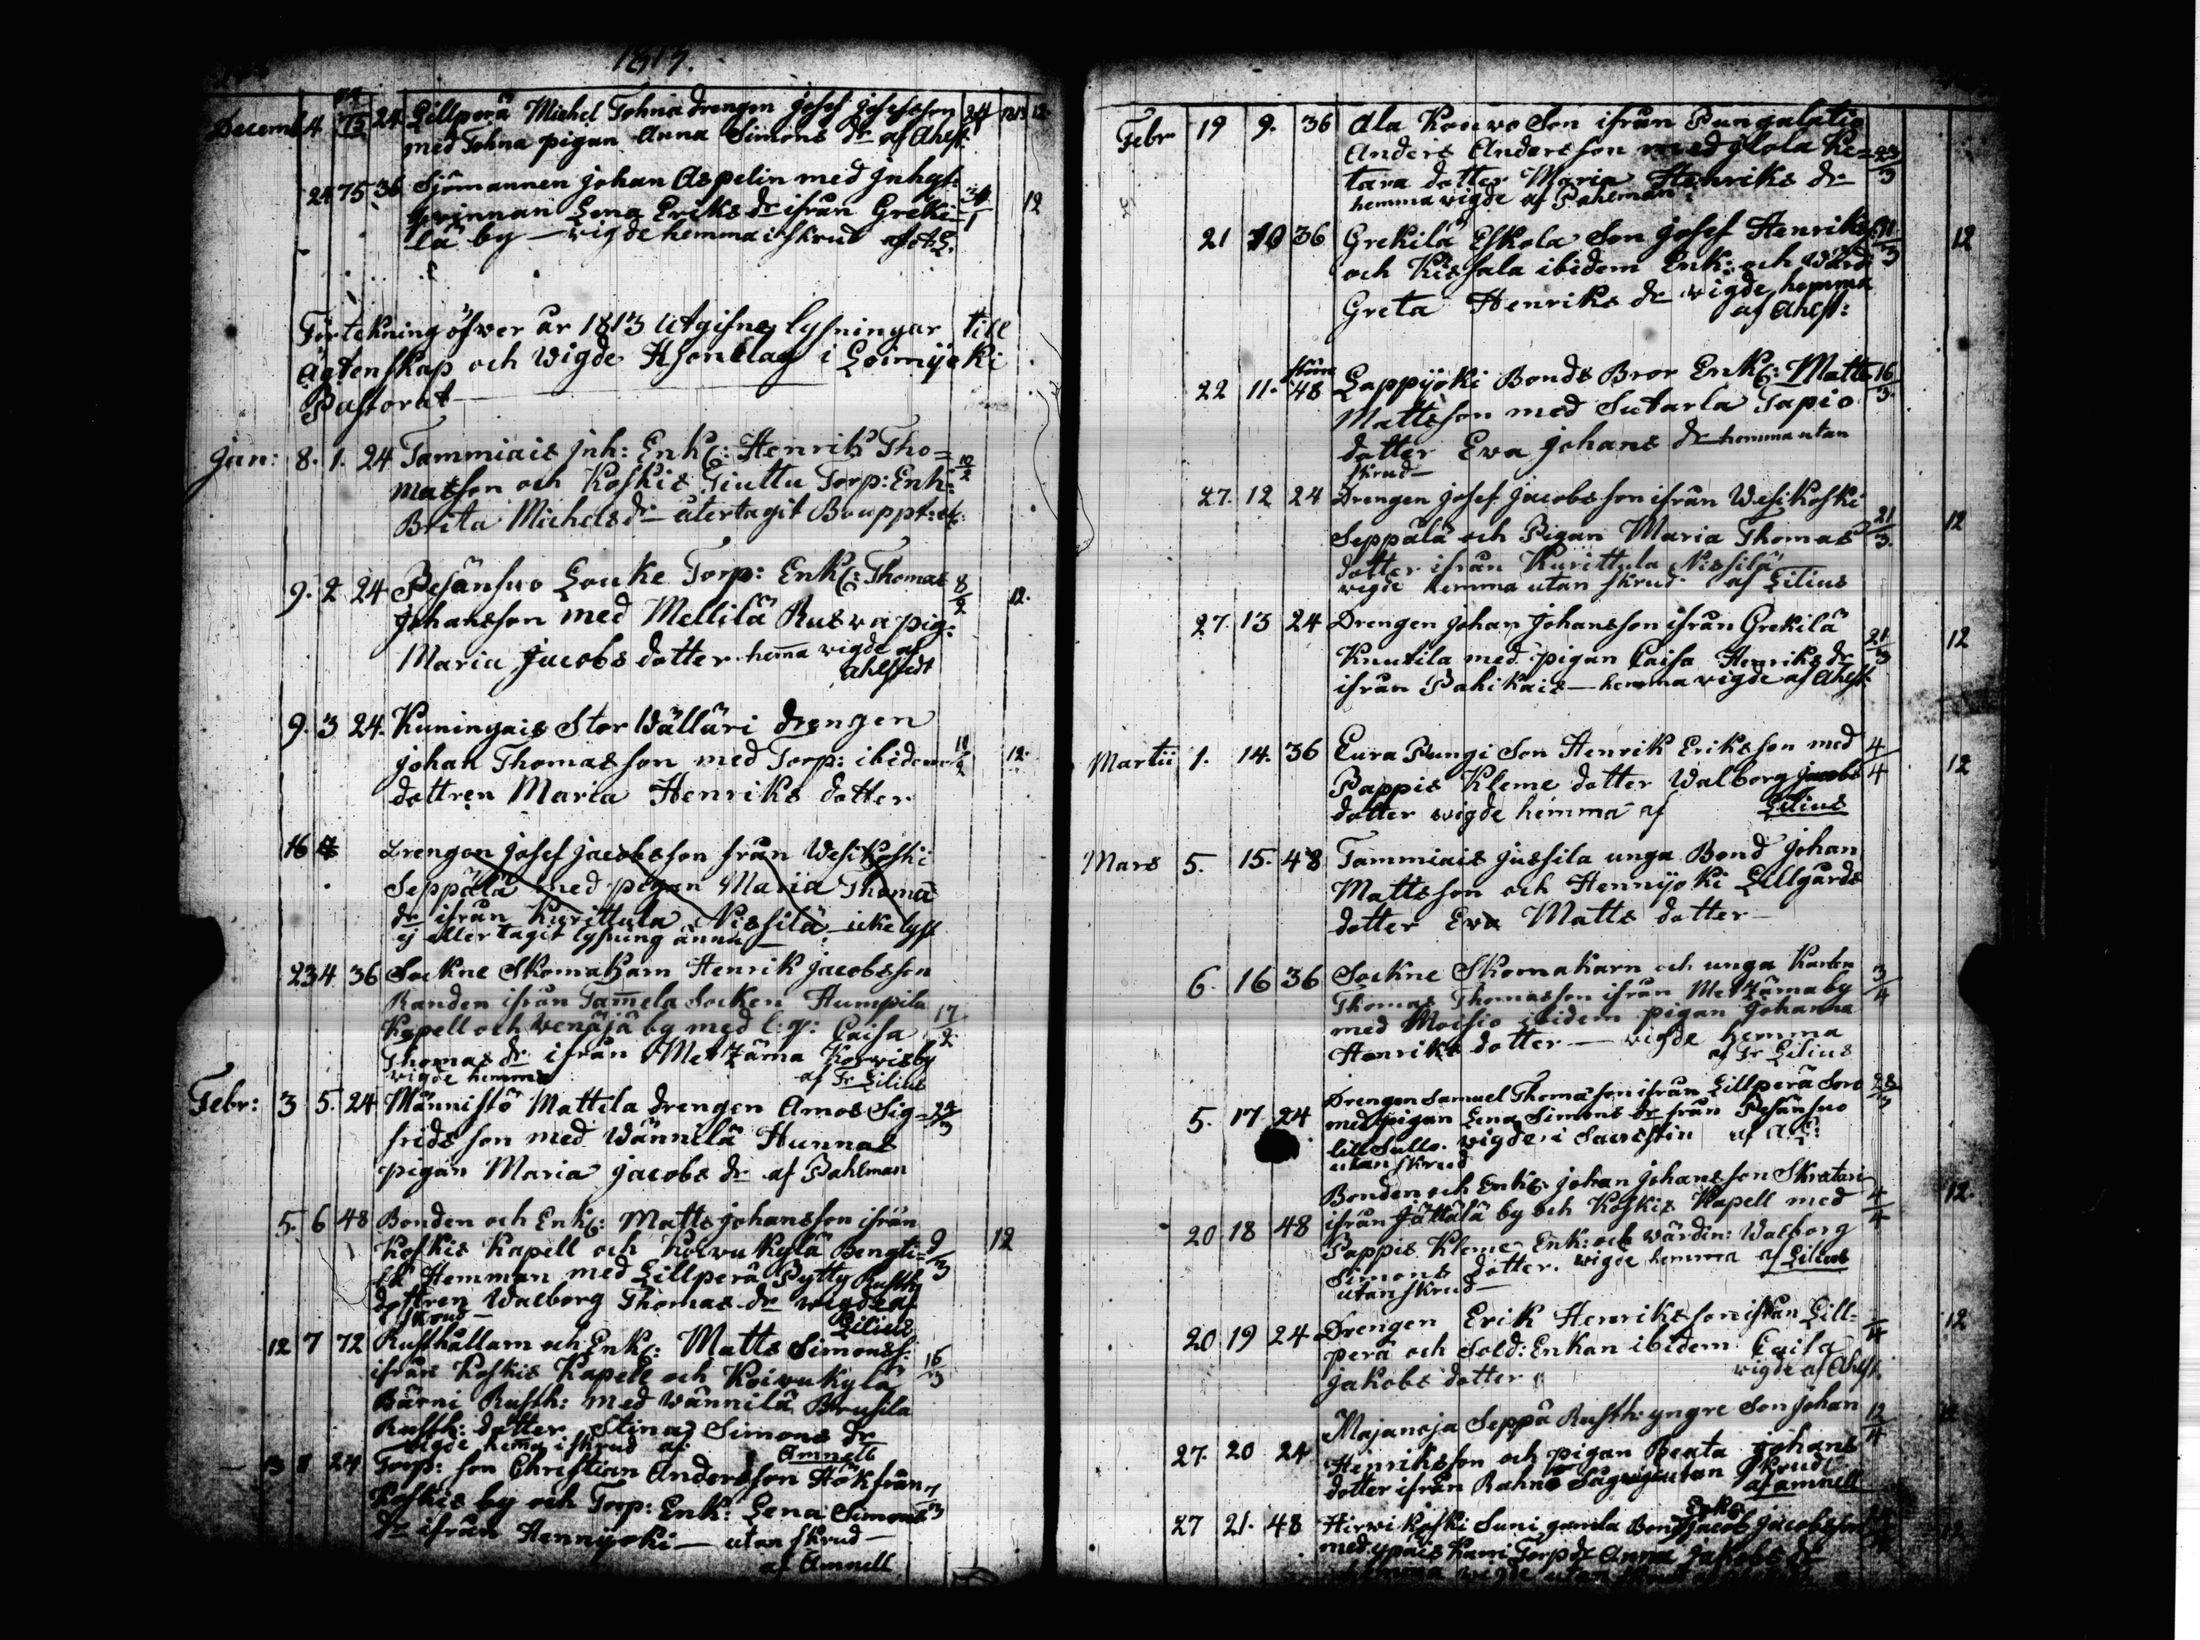 1813.
Decemb 4 24 Lillperä Michel Tohnia drengen Josef Josefsson 24 1813 12
med Tohna pigan Anna Simons dr af Ahlst:
24 75 36 Sjömannen Johan Aspelin med Inhys:
qvinnan Lena Eriks dr ifrån Greki- 12
lä by — vigde hemma i skrud
Förtekning öfwer år 1813 utgifne lysningar till
Ägtenskap och wigde Hjonelag i Loimijoki
Pastorat
Jan: 8. 1. 24 Tammiais Inh: Enkl: Henrik Tho= 10/2
masson och Koskis Tiuttu Torp: Enk:
Brita Michels dr återtagit
9. 2 24 Pesänsuo Louke Torp: Enkl: Thomas 8/2 12.
Johansson med Mellilä Rusva pig:
Maria Jacobs dotter hema vigde af
Ahlstedt
9. 3 24. Kuningais Stor Wälläri drengen
Johan Thomasson med Torp: ibidem 12.
dottren Maria Henriks dotter
16 Drengen Josef Jacobsson från Wesikoski
Seppälä med pigan Maria Thoma
dr ifrån Kurittula Nissilä — icke lyst
ej eller tagit lysning ännu —
23 4 36 Sockne Skomakarn Henrik Jacobsson
Randen ifrån Tamela Socken Humpila
Kapell och Venäjä by med l: q: Caisa 17/2
Thomas dr ifrån Metzäma Korwis by
vigde hemma af Fr Lilius
Febr: 3 5. 24 Männistö Mattila drengen Amos Sig= 28/3
frids son med Wännilä Hunnas
pigan Maria Jacobs dr af Pahlman
5. 6 48 Bonden och Enkl: Matts Johansson ifrån
Koskis Kapell och Koivukylä Bengti= 9/3 12
lä Hemman med Lillperä Pytty Rusth:
dottren Walborg Thomas dr vigde af
Lilius
12 7 72 Rusthållarn och Enkl: Matts Simonss:
ifrån Koskis Kapell och Koivukylä 16/3
Bärni Rusth: med Wännilä Brusila
Rusth: dotter Stina Simons dr
vigde hema i skrud af Amnell
13 8 24 Torp: son Christian Andersson Hök från
Koskis by och Torp: Enk: Lena Simons
dr ifrån Hennijoki — utan skrud
af Amnell
Febr 19 9. 36 Ala Kouvo Son ifrån Pungalatio
Anders Andersson med Jlola Ke= 23/3
tara dotter Maria Henriks dr
hemma vigde af Pahlman
21 10 36 Grekilä Eskola Son Josef Henriks 21/3 12
och Kissala ibidem Enk: och Wärd:
Greta Henriks dr vigde hemma
af Ahlst:
22 11. 48 Lappijoki Bonds Bror Enkl: Matts 16/3
Mattsson med Sutarla Tapio
dotter Eva Johans dr hemma utan
skrud —
27. 12 24 Drengen Josef Jacobsson ifrån Wesikoski
Seppälä och Pigan Maria Thomas 21/3 12
dotter ifrån Kurittula Nissilä
vigde hemma utan skrud af Lilius
27. 13 24 Drengen Johan Johansson ifrån Grekilä
Knutila med pigan Caisa Henriks dr 21/3 12
ifrån Pahikais — hemma vigde af Ahlst:
Martii 1. 14. 36 Eura Pungi Son Henrik Eriksson med 4/4 12
Pappis Kleme dotter Walborg Jacobs
dotter vigde hemma af Lilius
Mars 5. 15. 48 Tammiais Jussila unga Bond Johan
Mattsson och Hennijoki Lillgårds
dotter Eva Matts dotter —
6. 16 36 Sockne Skomakarn och unga Karlen 3/4
Thomas Thomasson ifrån Metzäma by
med Moisio ibidem pigan Johanna
Henriks dotter — vigde hemma
af Fr Lilius
5. 17 24 Drengen Samuel Thoma son ifrån Lillperä 28/3
med pigan Lena Simons dr från Pesänsuo
vigde i af
utan skrud
20 18 48 Bonden och Enkl: Johan Johansson Skratari
ifrån Jättälä by och Koskis Kapell med 4/4 12.
Pappis Kleme Enk: och värdin: Walborg
Simons dotter. vigde hemma af Lilius
utan skrud —
20 19 24 Drengen Erik Henriksson ifrån Lill- 12
perä och Sold: Enkan ibidem Caisa
Jakobs dotter vigde af Ahlst.
27. 20 24 Majanoja Seppä Rusth: yngre Son Johan 12/4
Henriksson och pigan Beata Johans
dotter ifrån utan skrud
af Amnell
27 21. 48 Hirvikoski Suni gamla Bond Jacob Jacobsson
med Ypäis Torp dr Anna Jakobs dr
hemma vigde utan